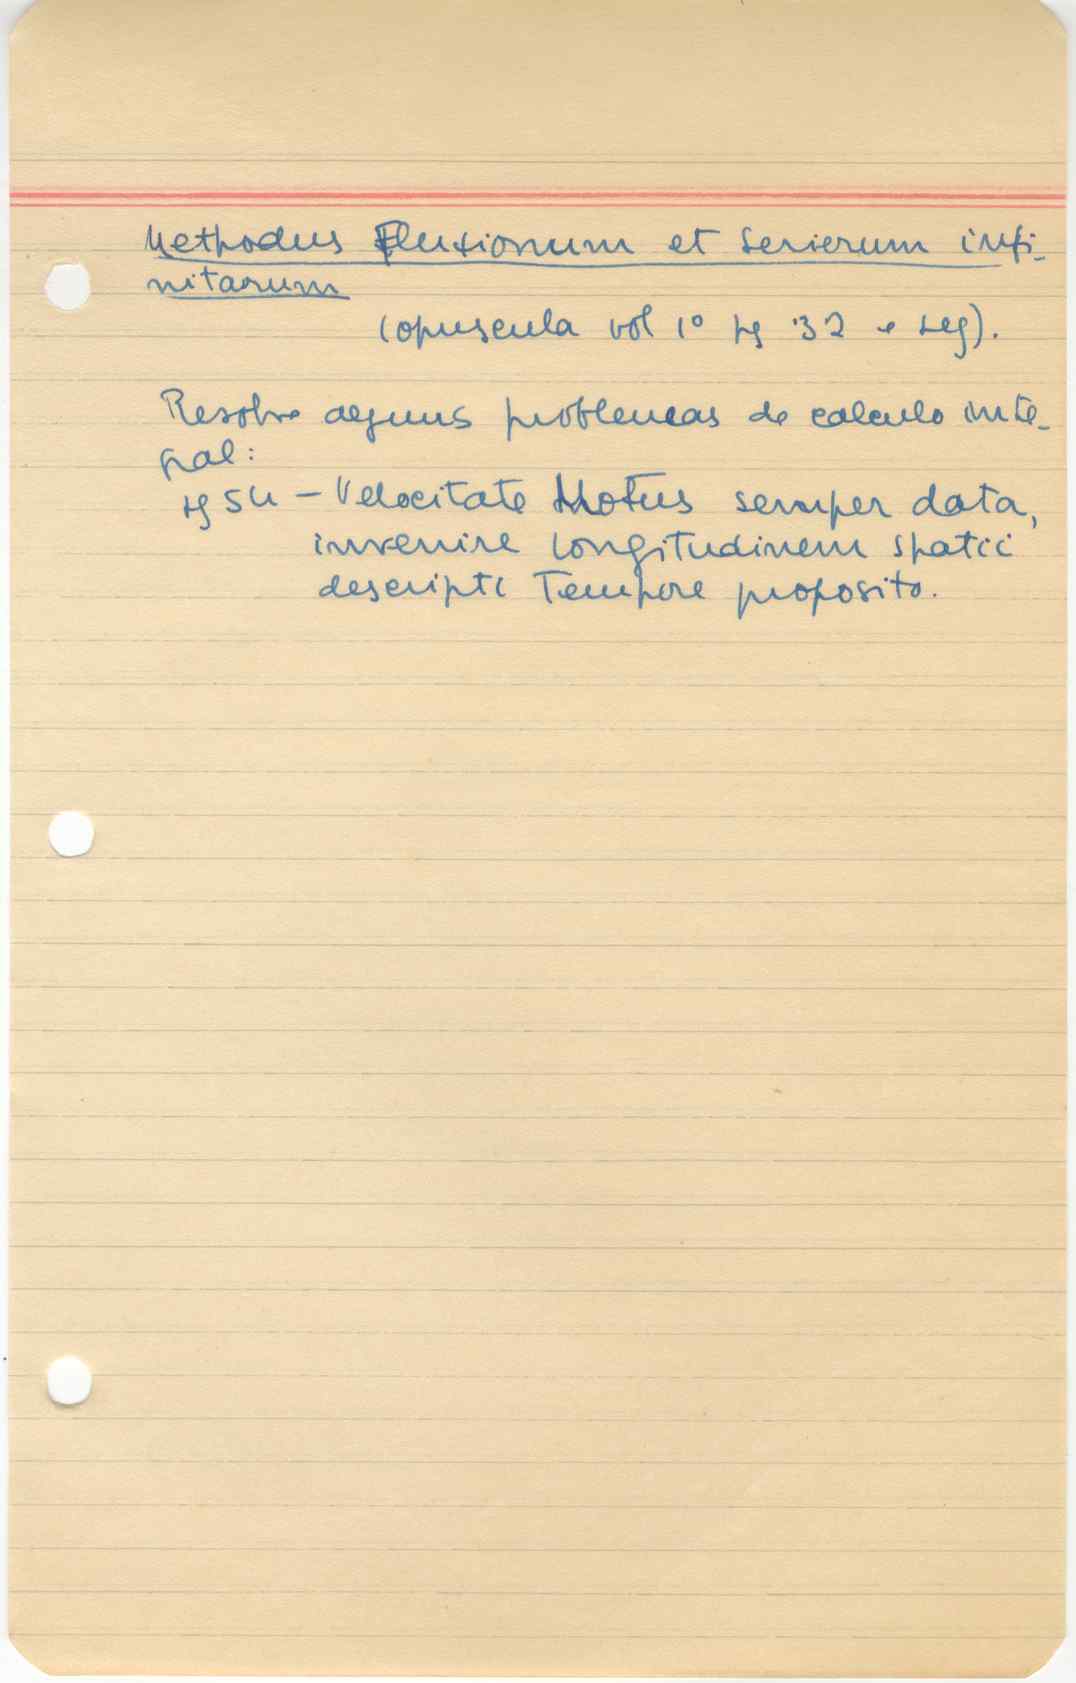 Methodus Fluxionum et serierum infi-
nitarum
(opuscula vol 1º pg 32 e seg).
Resolve alguns problemas de calculo inte-
gral:
pg 54 – Velocitate Motus semper data,
invenire longitudinem spatii
descripti Tempore proposito.